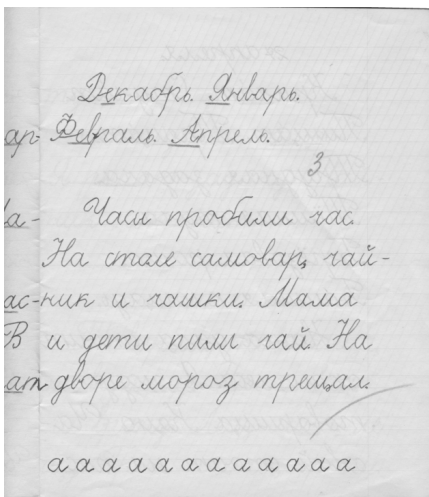 Декабрь. Январь.
ар- Февраль. Апрель.
3
Ча- Часы пробили час.
На столе самовар, чай-
ас- ник и чашки. Мама
В и дети пили чай. На
ат дворе мороз трещал.
а а а а а а а а а а а а а